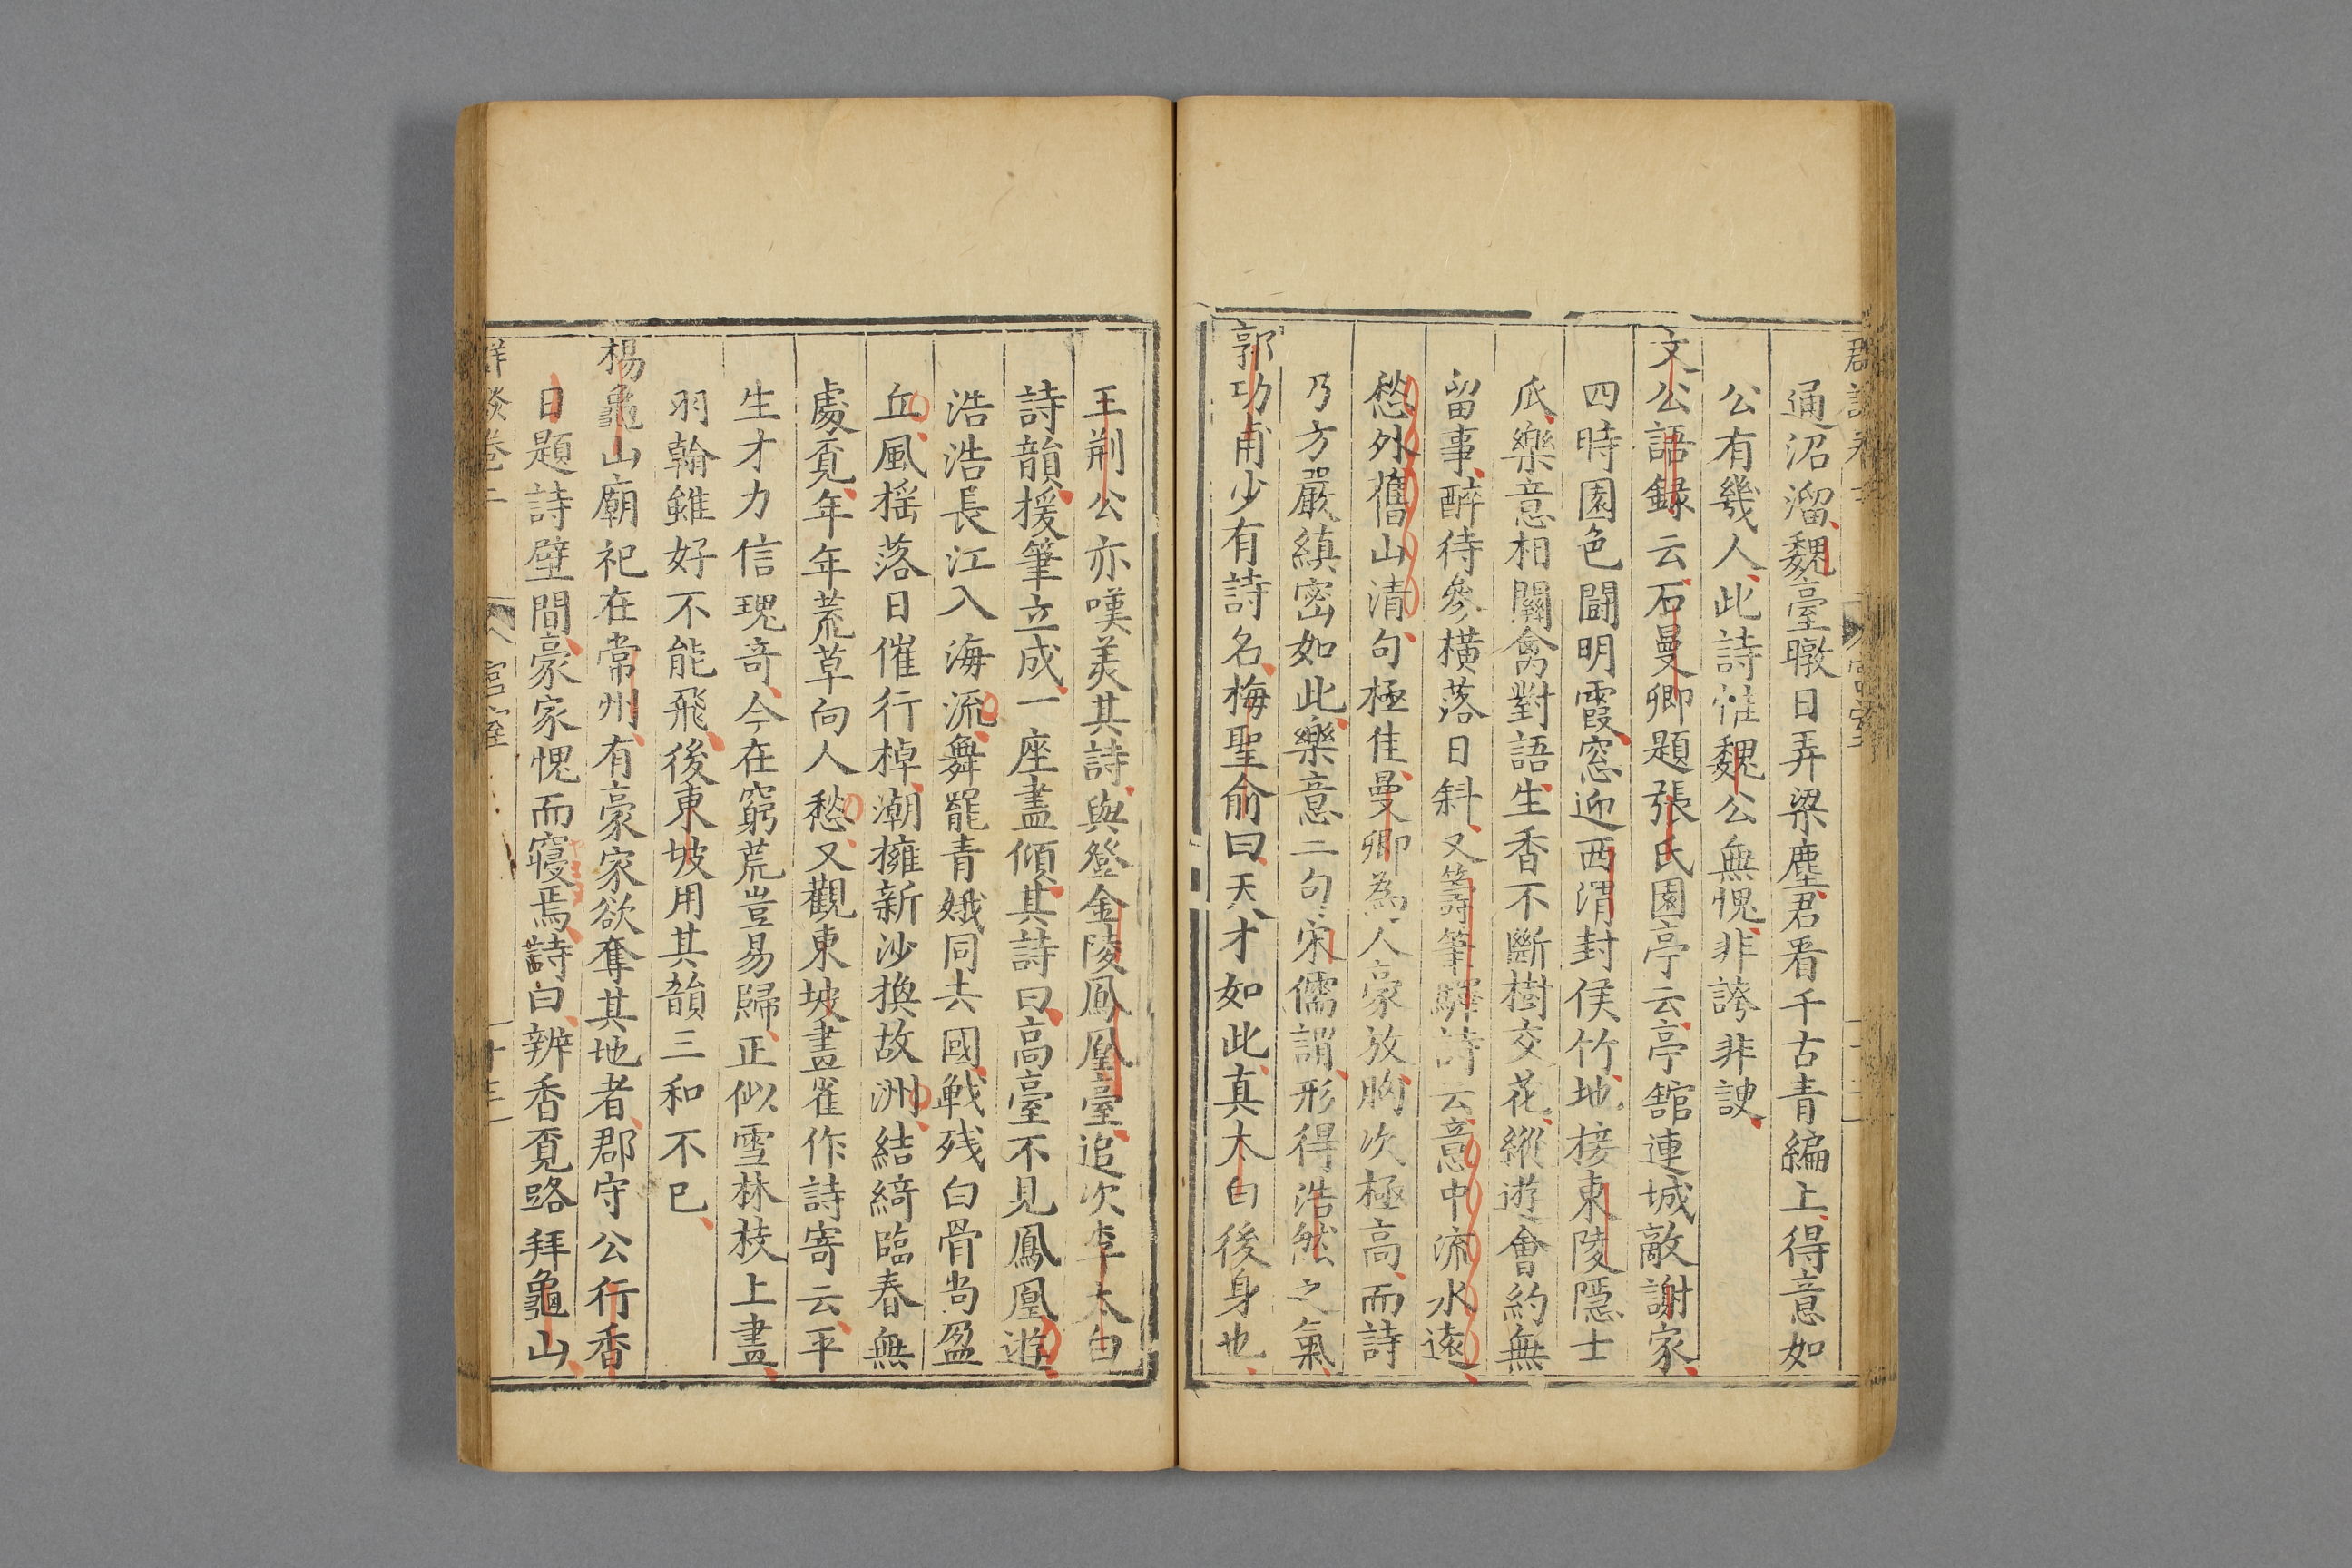 通沼溜魏臺暾日弄梁塵君看千古青編上得意如
公有幾人此詩惟魏公無愧非誇非諛
文公語録云石曼卿題張氏園亭云亭舘連城敵謝家
四時園色鬪明霞窓迎西渭封侯竹地接東陵隱士
瓜樂意相關禽對語生香不斷樹交花縱遊會約無
留事醉待參橫落日斜又籌筆驛詩云意中流水遠
愁外舊山清句極佳曼卿為人豪放胸次極高而詩
乃方嚴縝密如此樂意二句宋儒謂形得浩然之氣
郭功甫少有詩名梅聖俞曰天才如此真太白後身也
王荆公亦嘆美其詩與登金陵鳳凰臺追次李太白
詩韻援筆立成一座盡傾其詩曰高臺不見鳳凰遊
浩浩長江入海流舞罷青娥同去國戰残白骨尚盈
丘風揺落日催行棹潮擁新沙換故洲結綺臨春無
處覔年年荒草向人愁又觀東坡畫雀作詩寄云平
生才力信瑰奇今在窮荒豈易歸正似雪林枝上畫
羽翰雖好不能飛後東坡用其韻三和不已
楊龜山廟祀在常州有豪家欲奪其地者郡守公行香
日題詩壁間豪家愧而寝焉詩曰辨香覔路拜龜山
卷二 宮室